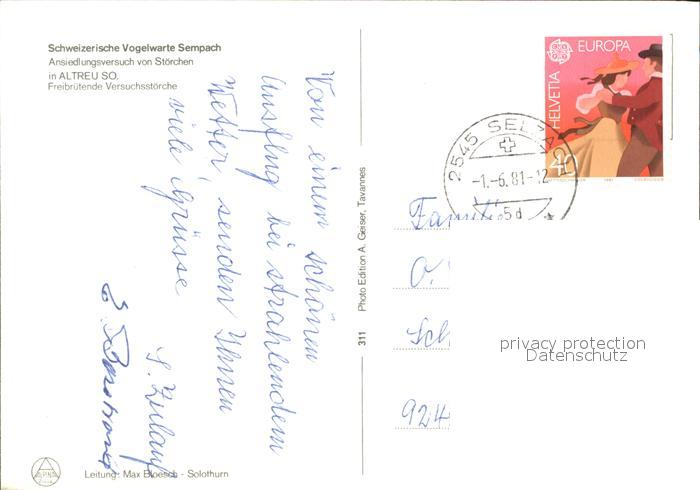 Schweizerische Vogelwarte Sempach
Ansiedlungsversuch von Störchen
in ALTREU SO.
Freibrütende Versuchsstörche
Von einem schönen
Ausflug bei strahlendem
Wetter senden Ihnen
viele Grüsse
S. Zulauf
Leitung: Max Bloesch - Solothurn
311 Photo Edition A. Geiser, Tavannes
HELVETIA
EUROPA
40
2545 SELZACH
-1.-6.81-12
5d
Famili
O.
Sch
924
privacy protection
Datenschutz